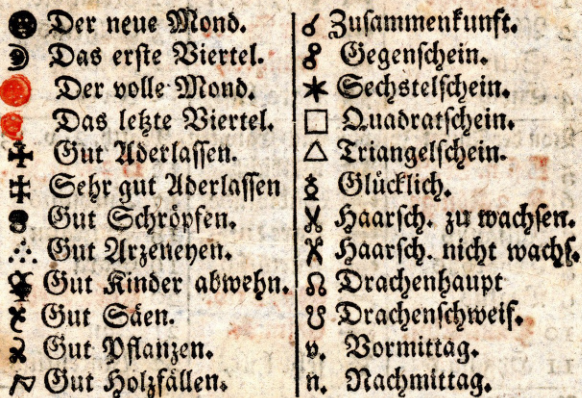 Der neue Mond.
Das erste Viertel.
Der volle Mond.
Das letzte Viertel.
Gut Aderlassen.
Sehr gut Aderlassen
Gut Schröpfen.
Gut Arzeneyen.
Gut Kinder abwehn.
Gut Säen.
Gut Pflanzen.
Gut Holzfällen.
☌ Zusammenkunft.
☍ Gegenschein.
⚹ Sechstelschein.
□ Quadratschein.
△ Triangelschein.
Glücklich.
Haarsch. zu wachsen.
Haarsch. nicht wachs.
☊ Drachenhaupt
☋ Drachenschweif.
v. Vormittag.
n. Nachmittag.